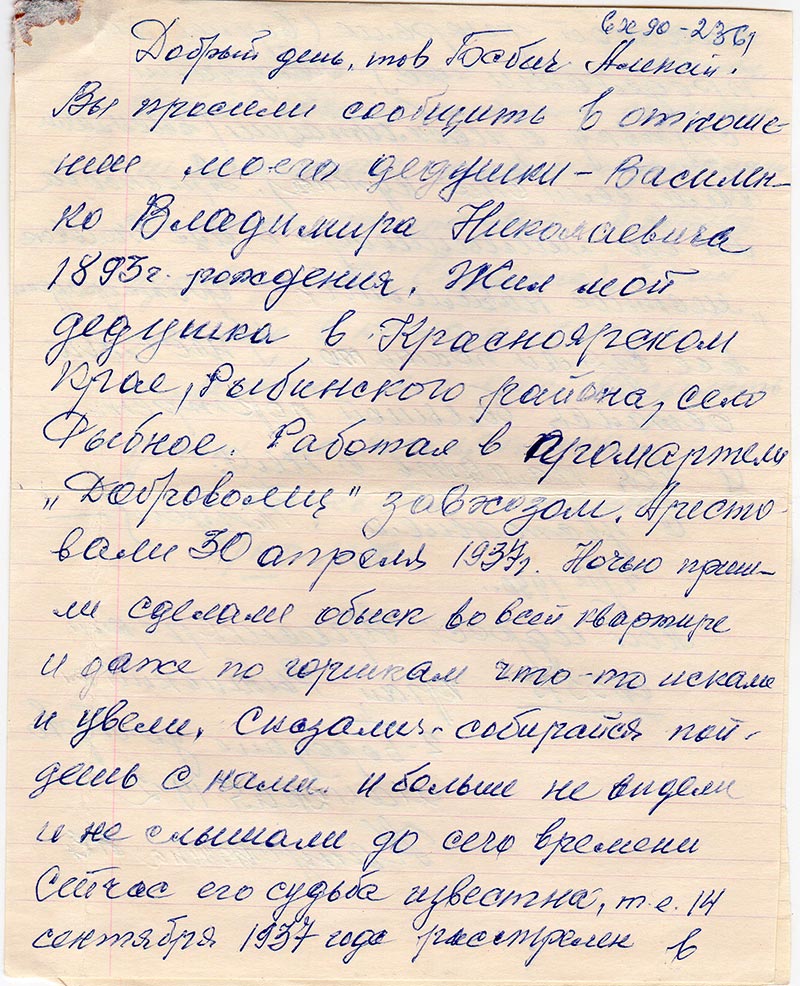 вх 90-2361
Добрый день, тов Бабич Алексей.
Вы просили сообщить в отноше-
нии моего дедушки - Василен-
ко Владимира Николаевича
1893г. рождения. Жил мой
дедушка в Красноярском
Крае, Рыбинского района, село
Рыбное. Работал в промартели
"Доброволец" завхозом. Аресто-
вали 30 апреля 1937г. Ночью приш-
ли сделали обыск во всей квартире
и даже по горшкам что-то искали
и увели. Сказали - собирайся пой-
дешь с нами. и больше не видели
и не слышали до сего времени
Сейчас его судьба известна, т.е. 14
сентября 1937 года расстрелен в